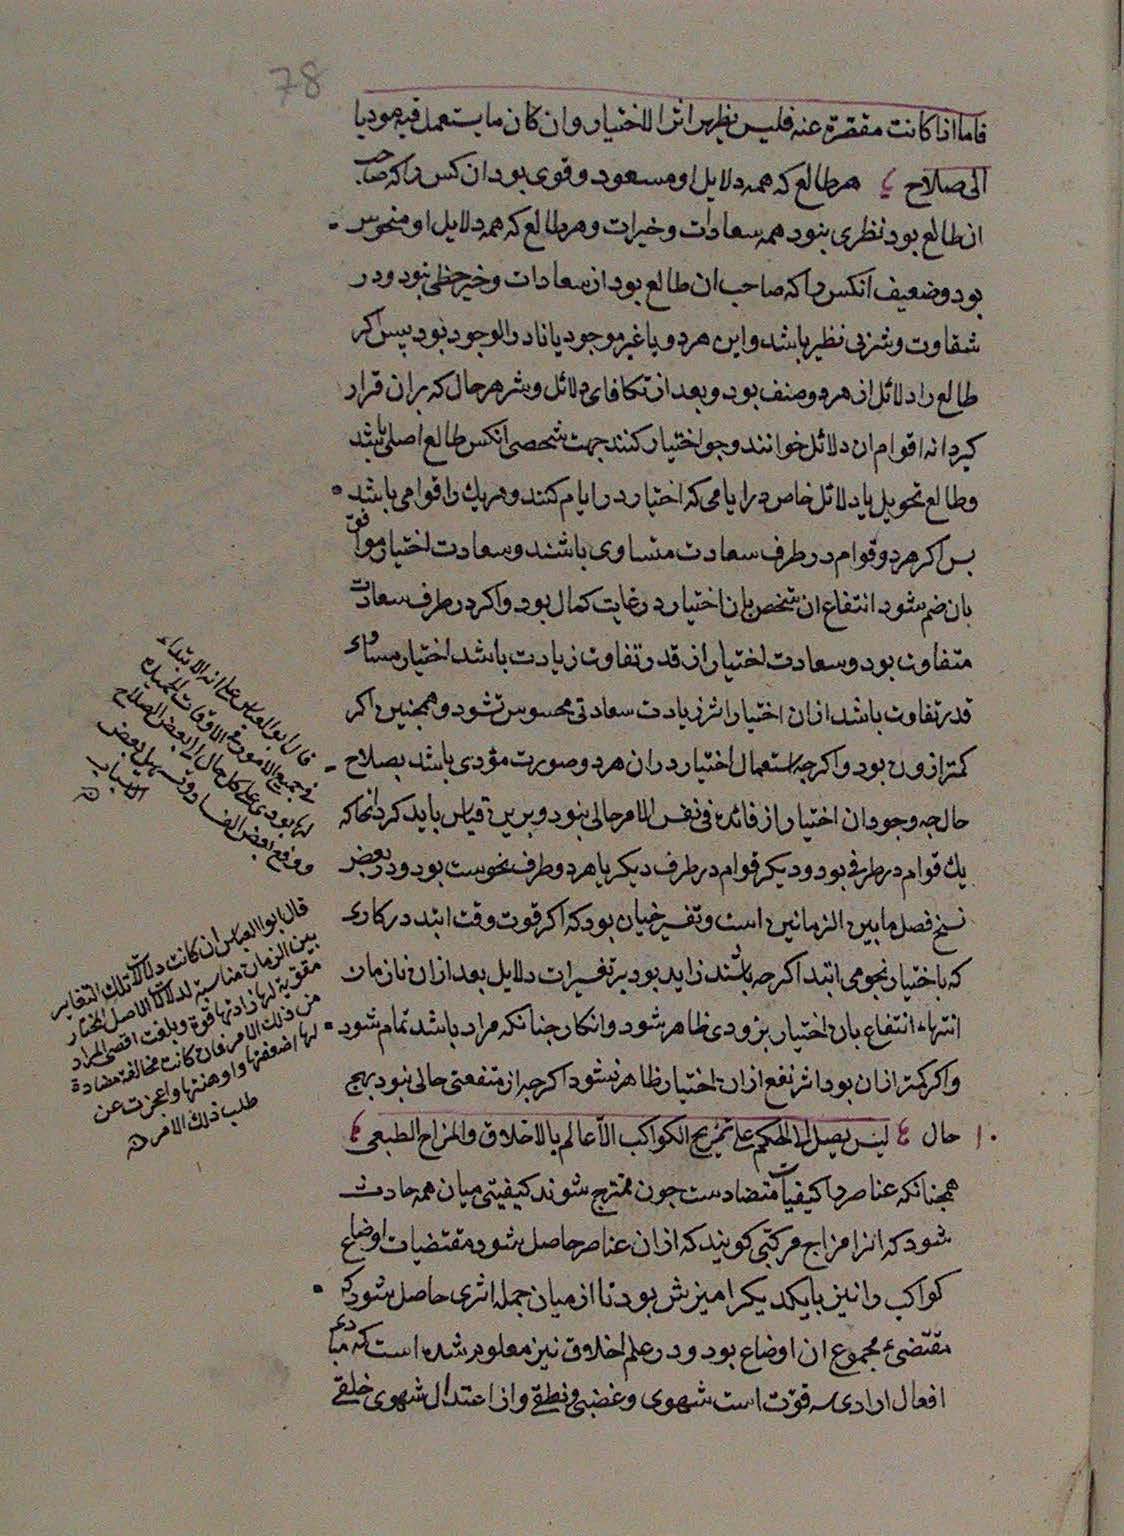 78
فاما اذا كانت مقصرة عنه فليس يظهر اثر الاختيار وان كان ما يستعمل فيه موديا
الى صلاح هر طالع كه همه دلايل او مسعود و قوى بود ان كس را كه صاحب
ان طالع بود نظرى نبود همه سعادات و خيرات و هر طالع كه همه دلايل او منحوس
بود و ضعيف انكس را كه صاحب ان طالع بود از سعادات و خير حظى نبود و در
شقاوت و شر بى نظير باشد و اين هر دو يا غير موجود يا نادر الوجود بود پس اكر
طالع را دلائل از هر دو صنف بود و بعد از تكافاى دلائل و شر هر حال كه بران قرار
كيرد انه اقوام ان دلائل خوانند و جو اختيار كنند جهت شخصى انكس طالع اصلى باشد
و طالع تحويل يا دلائل خاص در ايامى كه اختيار در ايام كنند و هر يك را قوامى باشد
پس اكر هر دو قوام در طرف سعادت متساوى باشند و سعادت اختيار موافق
بان ضم شود انتفاع ان شخص بان اختيار در غايت كمال بود و اكر در طرف سعادت
متفاوت بود و سعادت اختيار از قدر تفاوت زيادت باشد اختيار مساوى
قدر تفاوت باشد ازان اختيار اثر زيادت سعادتى محسوس نشود و همجنين اكر
كمتر ازون بود و اكر جه استعمال اختيار دران هر دو صورت مؤدى باشد بصلاح
حال جه وجود ان اختيار از فائده فى نفس الامر خالى نبود و برين قياس بايد كرد انجا كه
يك قوام در طرفى بود و ديكر قوام در طرف ديكر يا هر دو طرف نحوست بود و در بعض
نسخ فصل ما بين الزمانين است و تفسير خيان بود كه اكر قوت وقت ابتد در كارى
كه با ختيار نجومى ابتدا كرجه باشند زايد بود بر تغيرات دلايل بعد ازان تا زمان
انتهاء انتفاع بان اختيار بزودى ظاهر شود و انكار جنانكه مراد باشد تمام شود
و اكر كمتر ازان بود اثر نفع ازان اختيار ظاهر نشود اكر جه از منفعتى خالى نبود بهيج
حال ليس يصل الى الحكم على تمزيج الكواكب الا عالم بالاخلاق والمزاج الطبيعى
همجنانكه عناصر را كيفيات متضادست جون ممتزج شوند كيفيتى ميان همه حادث
شود كه انرا مزاج مركبى كويند كه ازان عناصر حاصل شود مقتضيات اوضاع
كواكب را نيز بايكديكر اميزش بود تا از ميان جمله اثرى حاصل شود كه
مقتضىء مجموع ان اوضاع بود و در علم اخلاق نيز معلوم شده است كه مبادى
افعال ارادى سه قوت است شهوى و غضبى و نطقى و از اعتدال شهوى خلقى
قال ابو العباس على انه الابتداء
فى جميع الامور فى الاوقات الحميدة
لها يودى على كل حال الى بعض الصلاح
و دفع بعض الفساد و تسهيل بعض
الاسباب
قال ابو العباس ان كانت دلالات تلك التغاير
بين الزمان مناسبة لدلالات الاصل المختار
مقوية لها زادتها قوة و بلغت اقصى المراد
من ذلك الامر و ان كانت مخالفة مضادة
لها اضعفتها و اوهنتها و اعجزت عن
طلب ذلك الامر